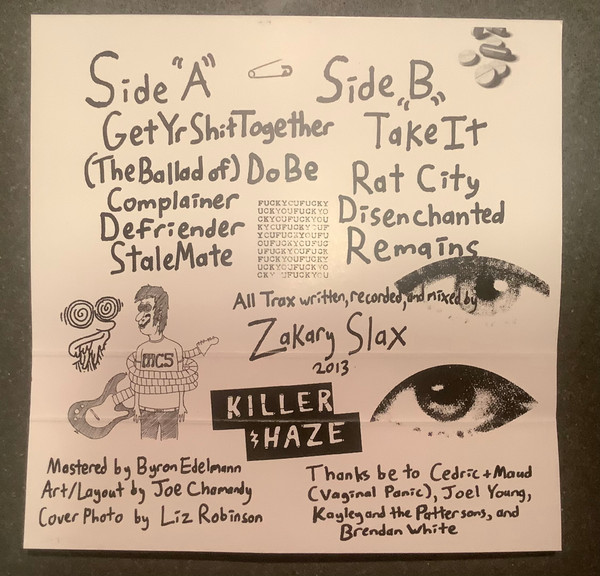 Side "A"
GetYrShitTogether
(The Ballad of) DoBe
Complainer
Defriender
StaleMate
Side "B"
Take It
Rat City
Disenchanted
Remains
FUCKYCUFUCKY
UCKYOUFUCKYO
CKYOUFUCKYOU
KYCUFUCKYOUF
YOUFUCKYOUFU
OUFUCKYOUFUC
UFUCKYOUFUCK
FUCKYOUFUCKY
UCKYOUFUCKYO
CKY UFUCKYOU
All Trax written, recorded, and mixed by
Zakary Slax
2013
MC5
KILLER
HAZE
Mastered by Byron Edelmann
Art/Layout by Joe Chamandy
Cover Photo by Liz Robinson
Thanks be to Cedric + Maud
(Vaginal Panic), Joel Young,
Kayley and the Pattersons, and
Brendan White